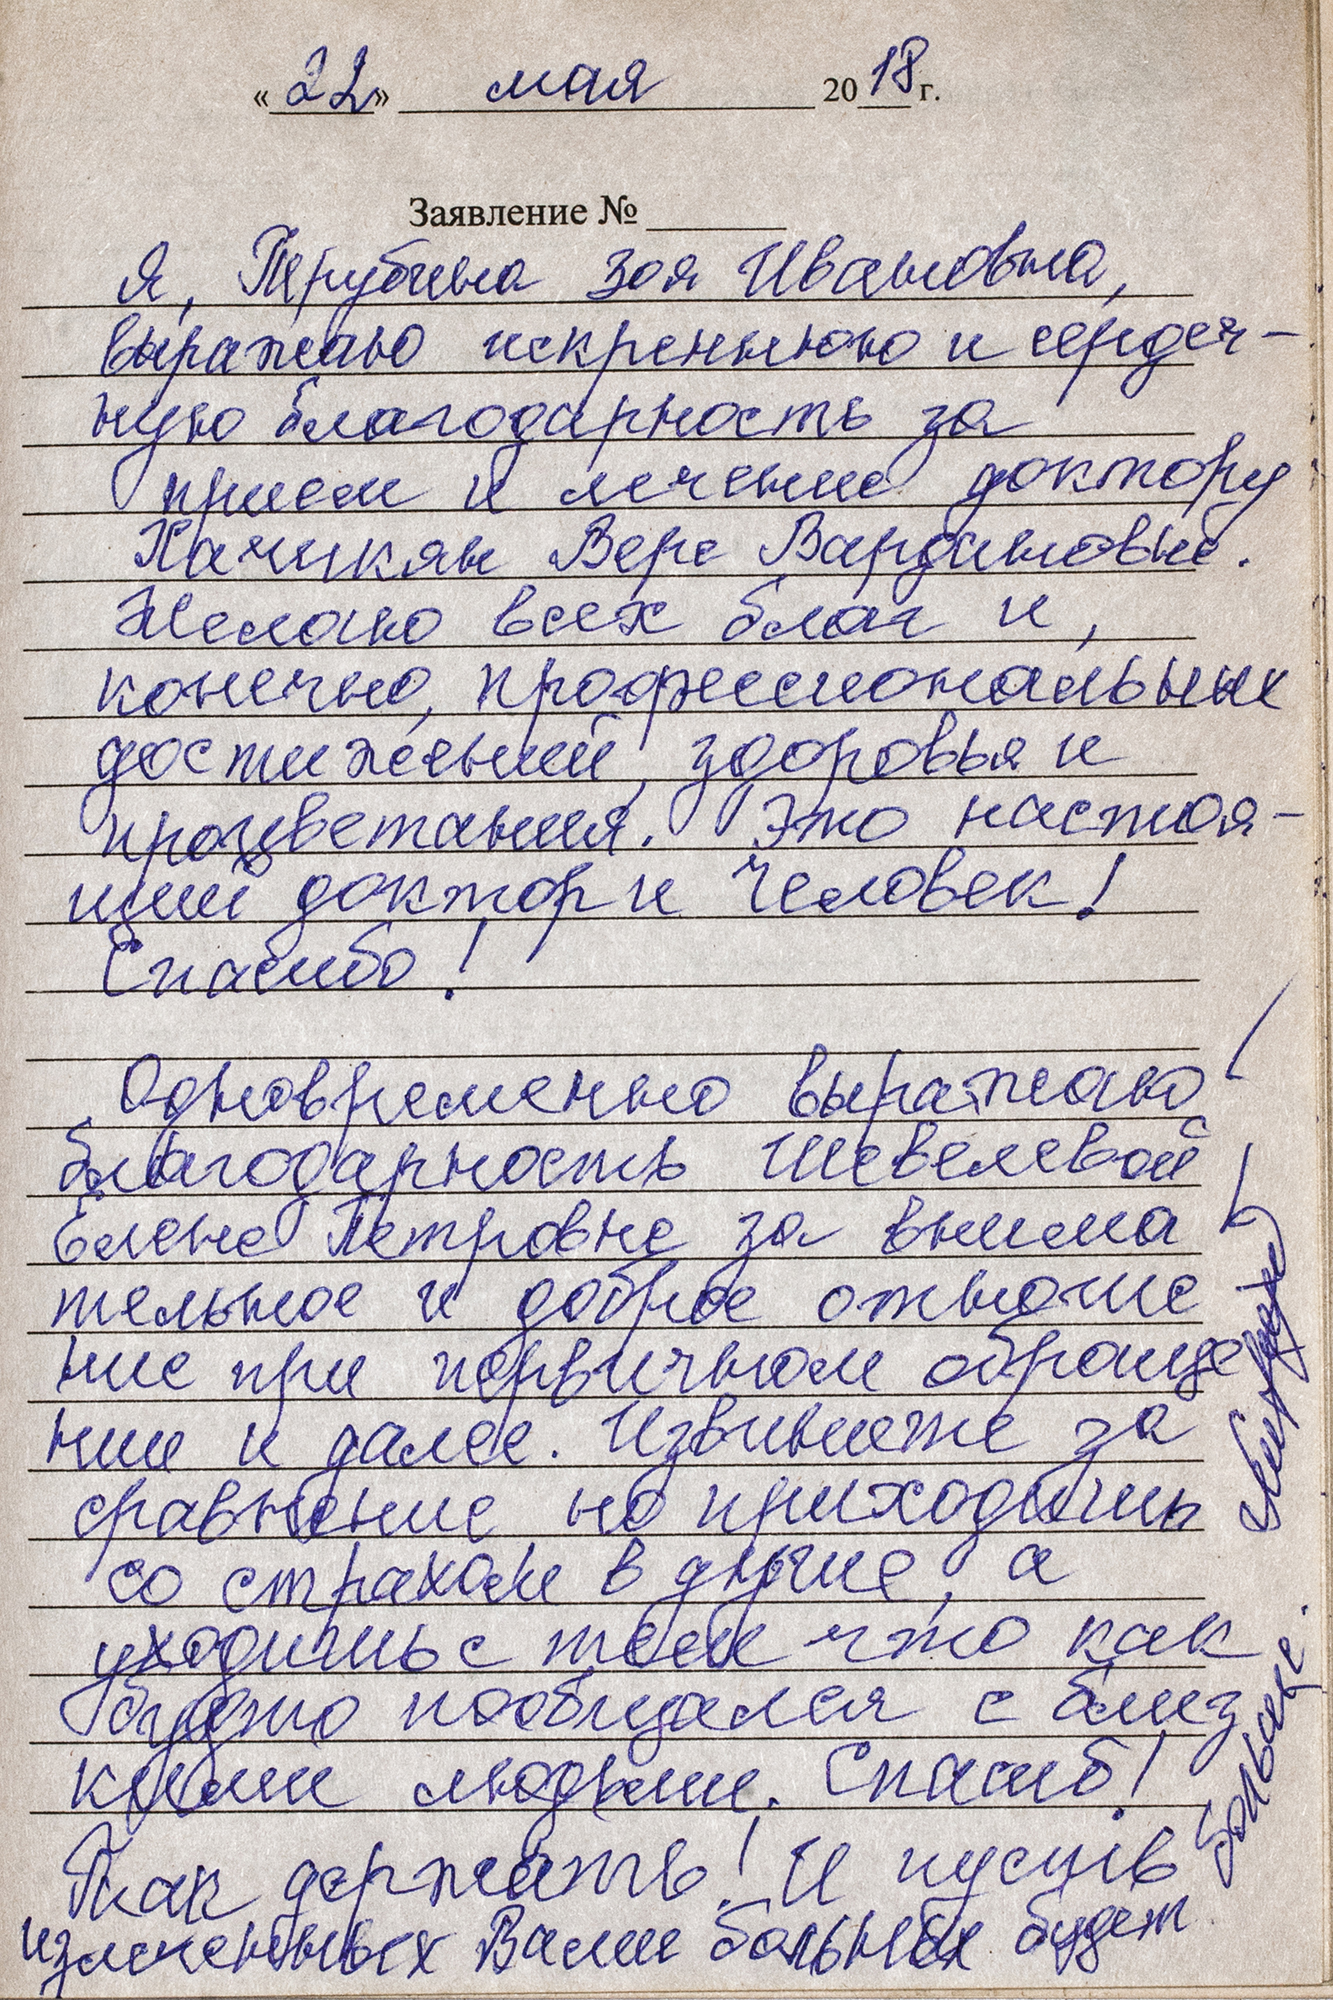 «22» мая 2018 г.
Заявление №
Я, Трубина Зоя Ивановна,
выражаю искреннюю и сердеч-
ную благодарность за
прием и лечение доктору
Хачикян Вере Вардиновне.
Желаю всех благ и,
конечно, профессиональных
достижений, здоровья и
процветания. Это настоя-
щий доктор и Человек!
Спасибо!
Одновременно выражаю
благодарность Шевелевой
Елене Петровне за внима
тельное и доброе отноше
ние при первичном обраще
нии и далее. Извините за
сравнение но приходишь
со страхом в душе, а
уходишь с тем что как
будто пообщался с близ
кими людьми. Спасиб!
Так держать! И пусть
излеченных Вами больных будет
больше.